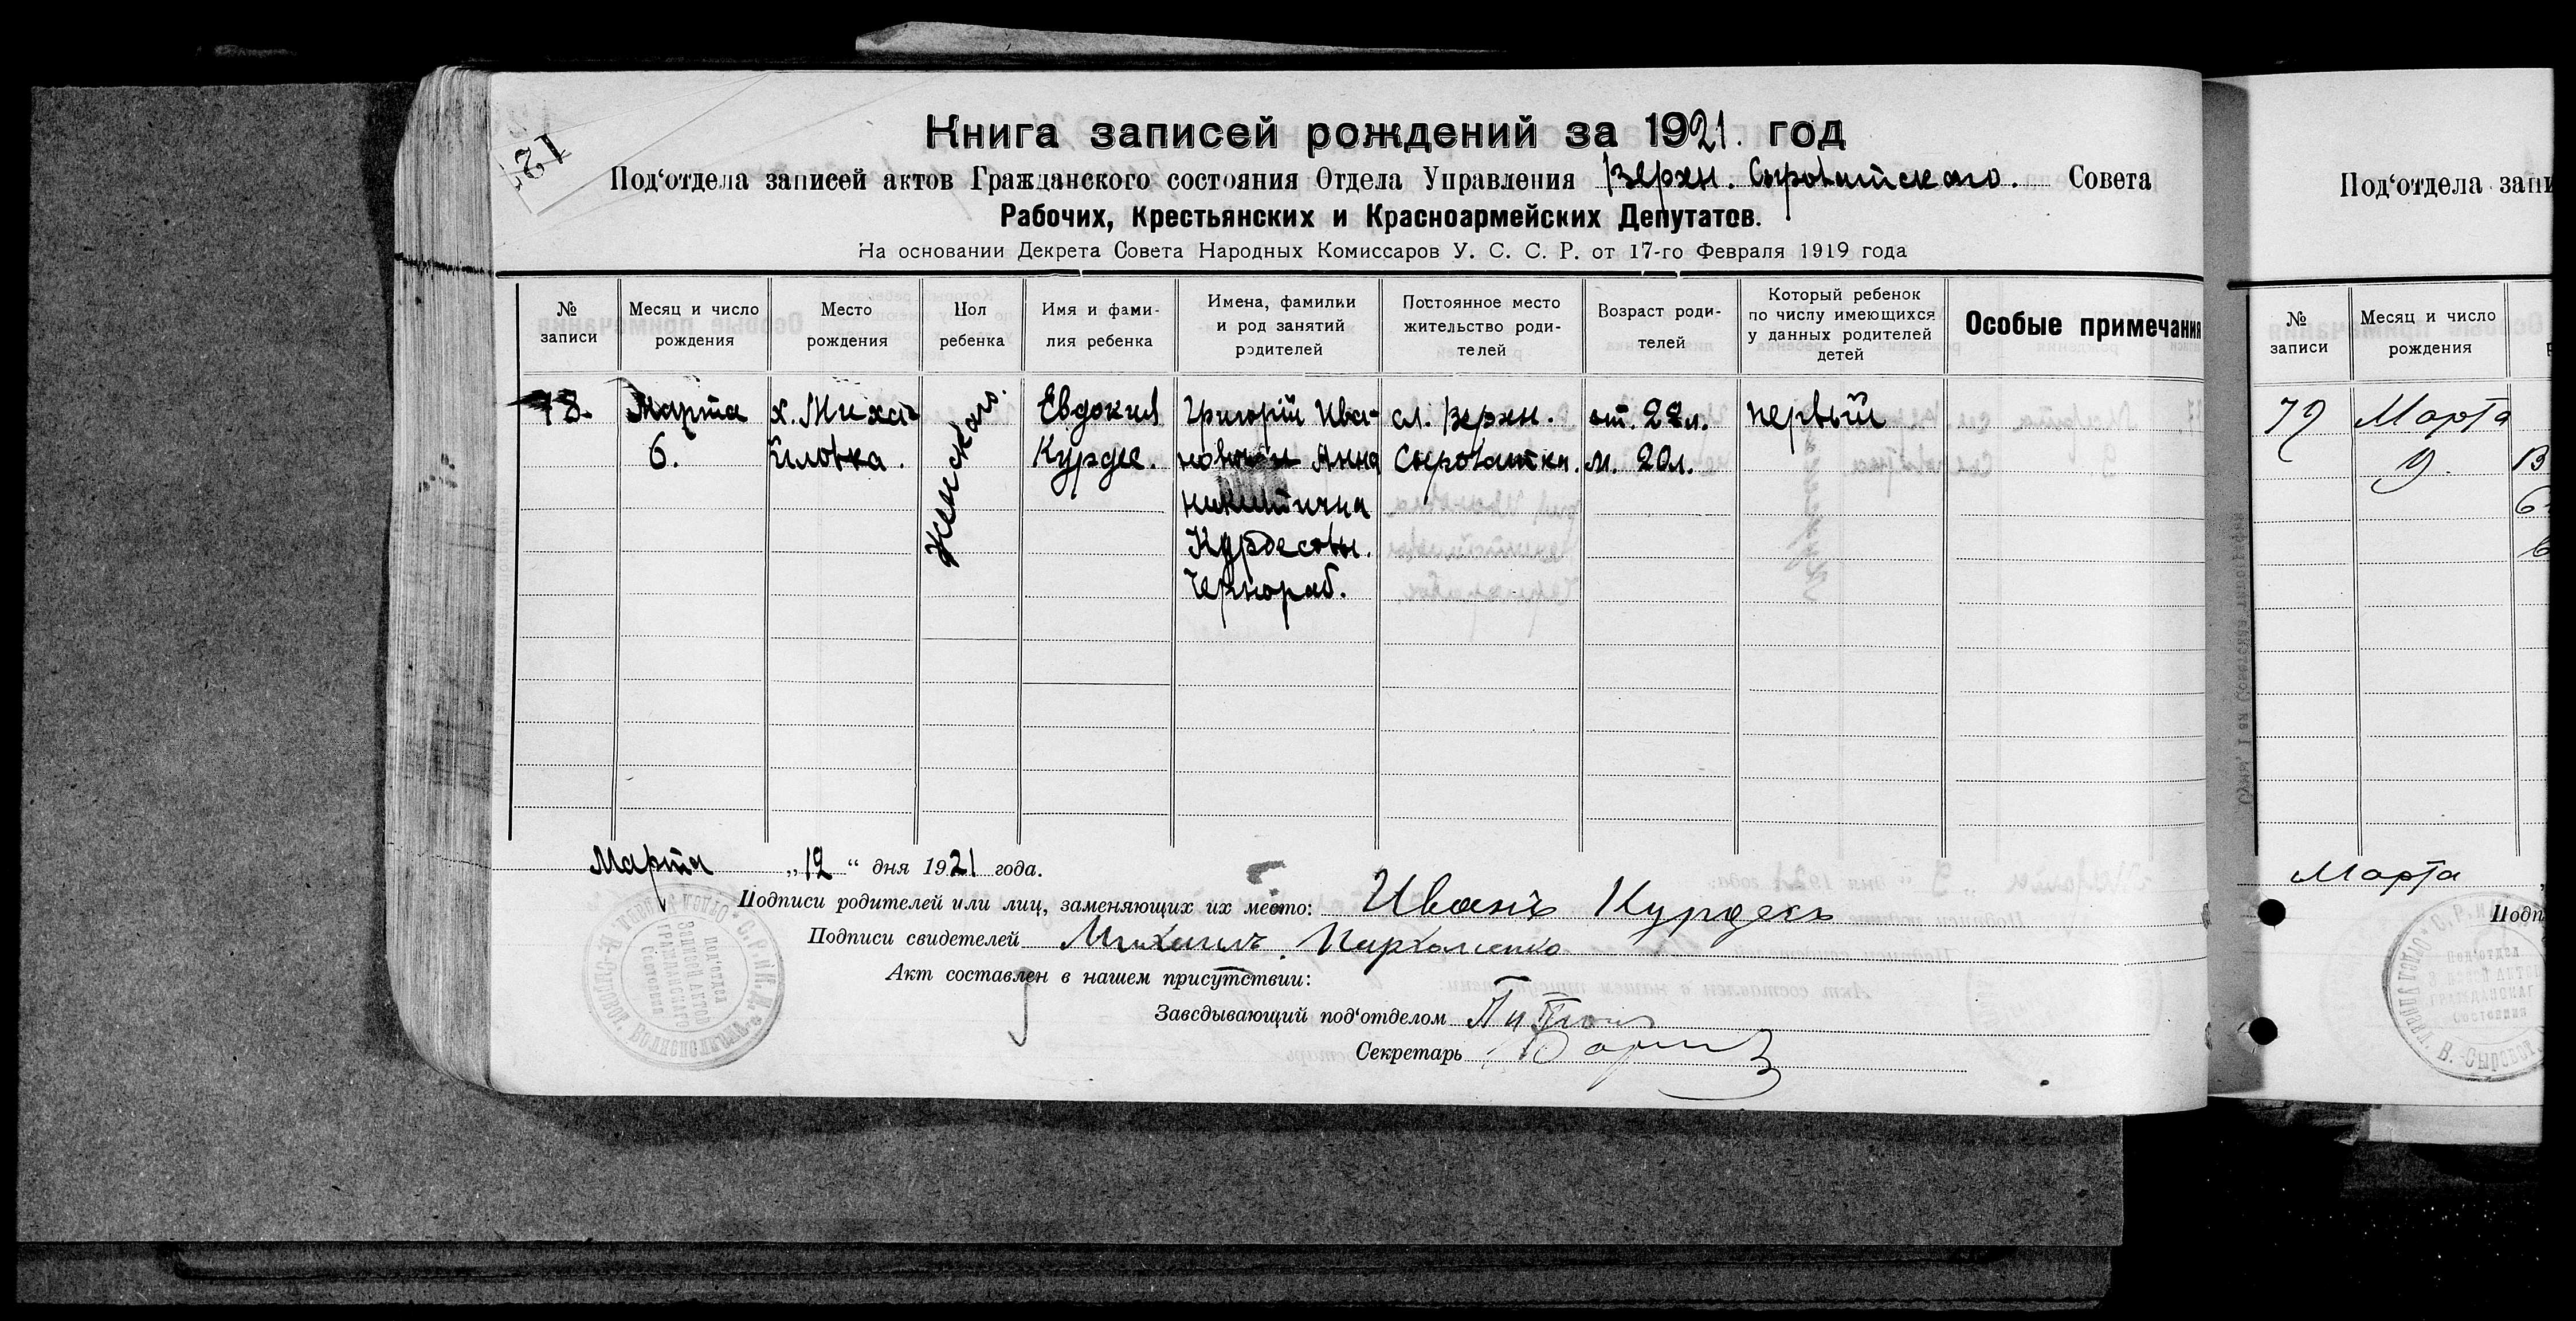 Книга записей рождений за 1921. год
Под‘отдела записей актов Гражданского состояния Отдела Управления Верхн. Сыроватского. Совета
Рабочих, Крестьянских и Красноармейских Депутатов.
На основании Декрета Совета Народных Комиссаров У. С. С. Р. от 17-го Февраля 1919 года
№ записи
Месяц и число рождения
Место рождения
Пол ребенка
Имя и фами-
лия ребенка
Имена, фамилии
и род занятий
родителей
Постоянное место
жительство роди-
телей
Возраст роди-
телей
Который ребенок
по числу имеющихся
у данных родителей
детей
Особые примечания
78.
Марта
6.
х. Михай
ловка.
Женскаго.
Евдокия
Курдес.
Григорий Ива-
нович Анна
Никитична
Курдесовы.
Чернораб.
сл. Верхн.
Сыроватка.
от. 22л.
м. 20л.
первый
Марта „12“ дня 1921 года.
Подписи родителей или лиц, заменяющих их место: Иванъ Курдесъ
Подписи свидетелей Михаилъ Пархоменко
Акт составлен в нашем присутствии:
Заведывающий под‘отделом
Секретарь
Под‘отдела запи
№ записи
Месяц и число рождения
79
Марта
9.
В
Марта
Подп